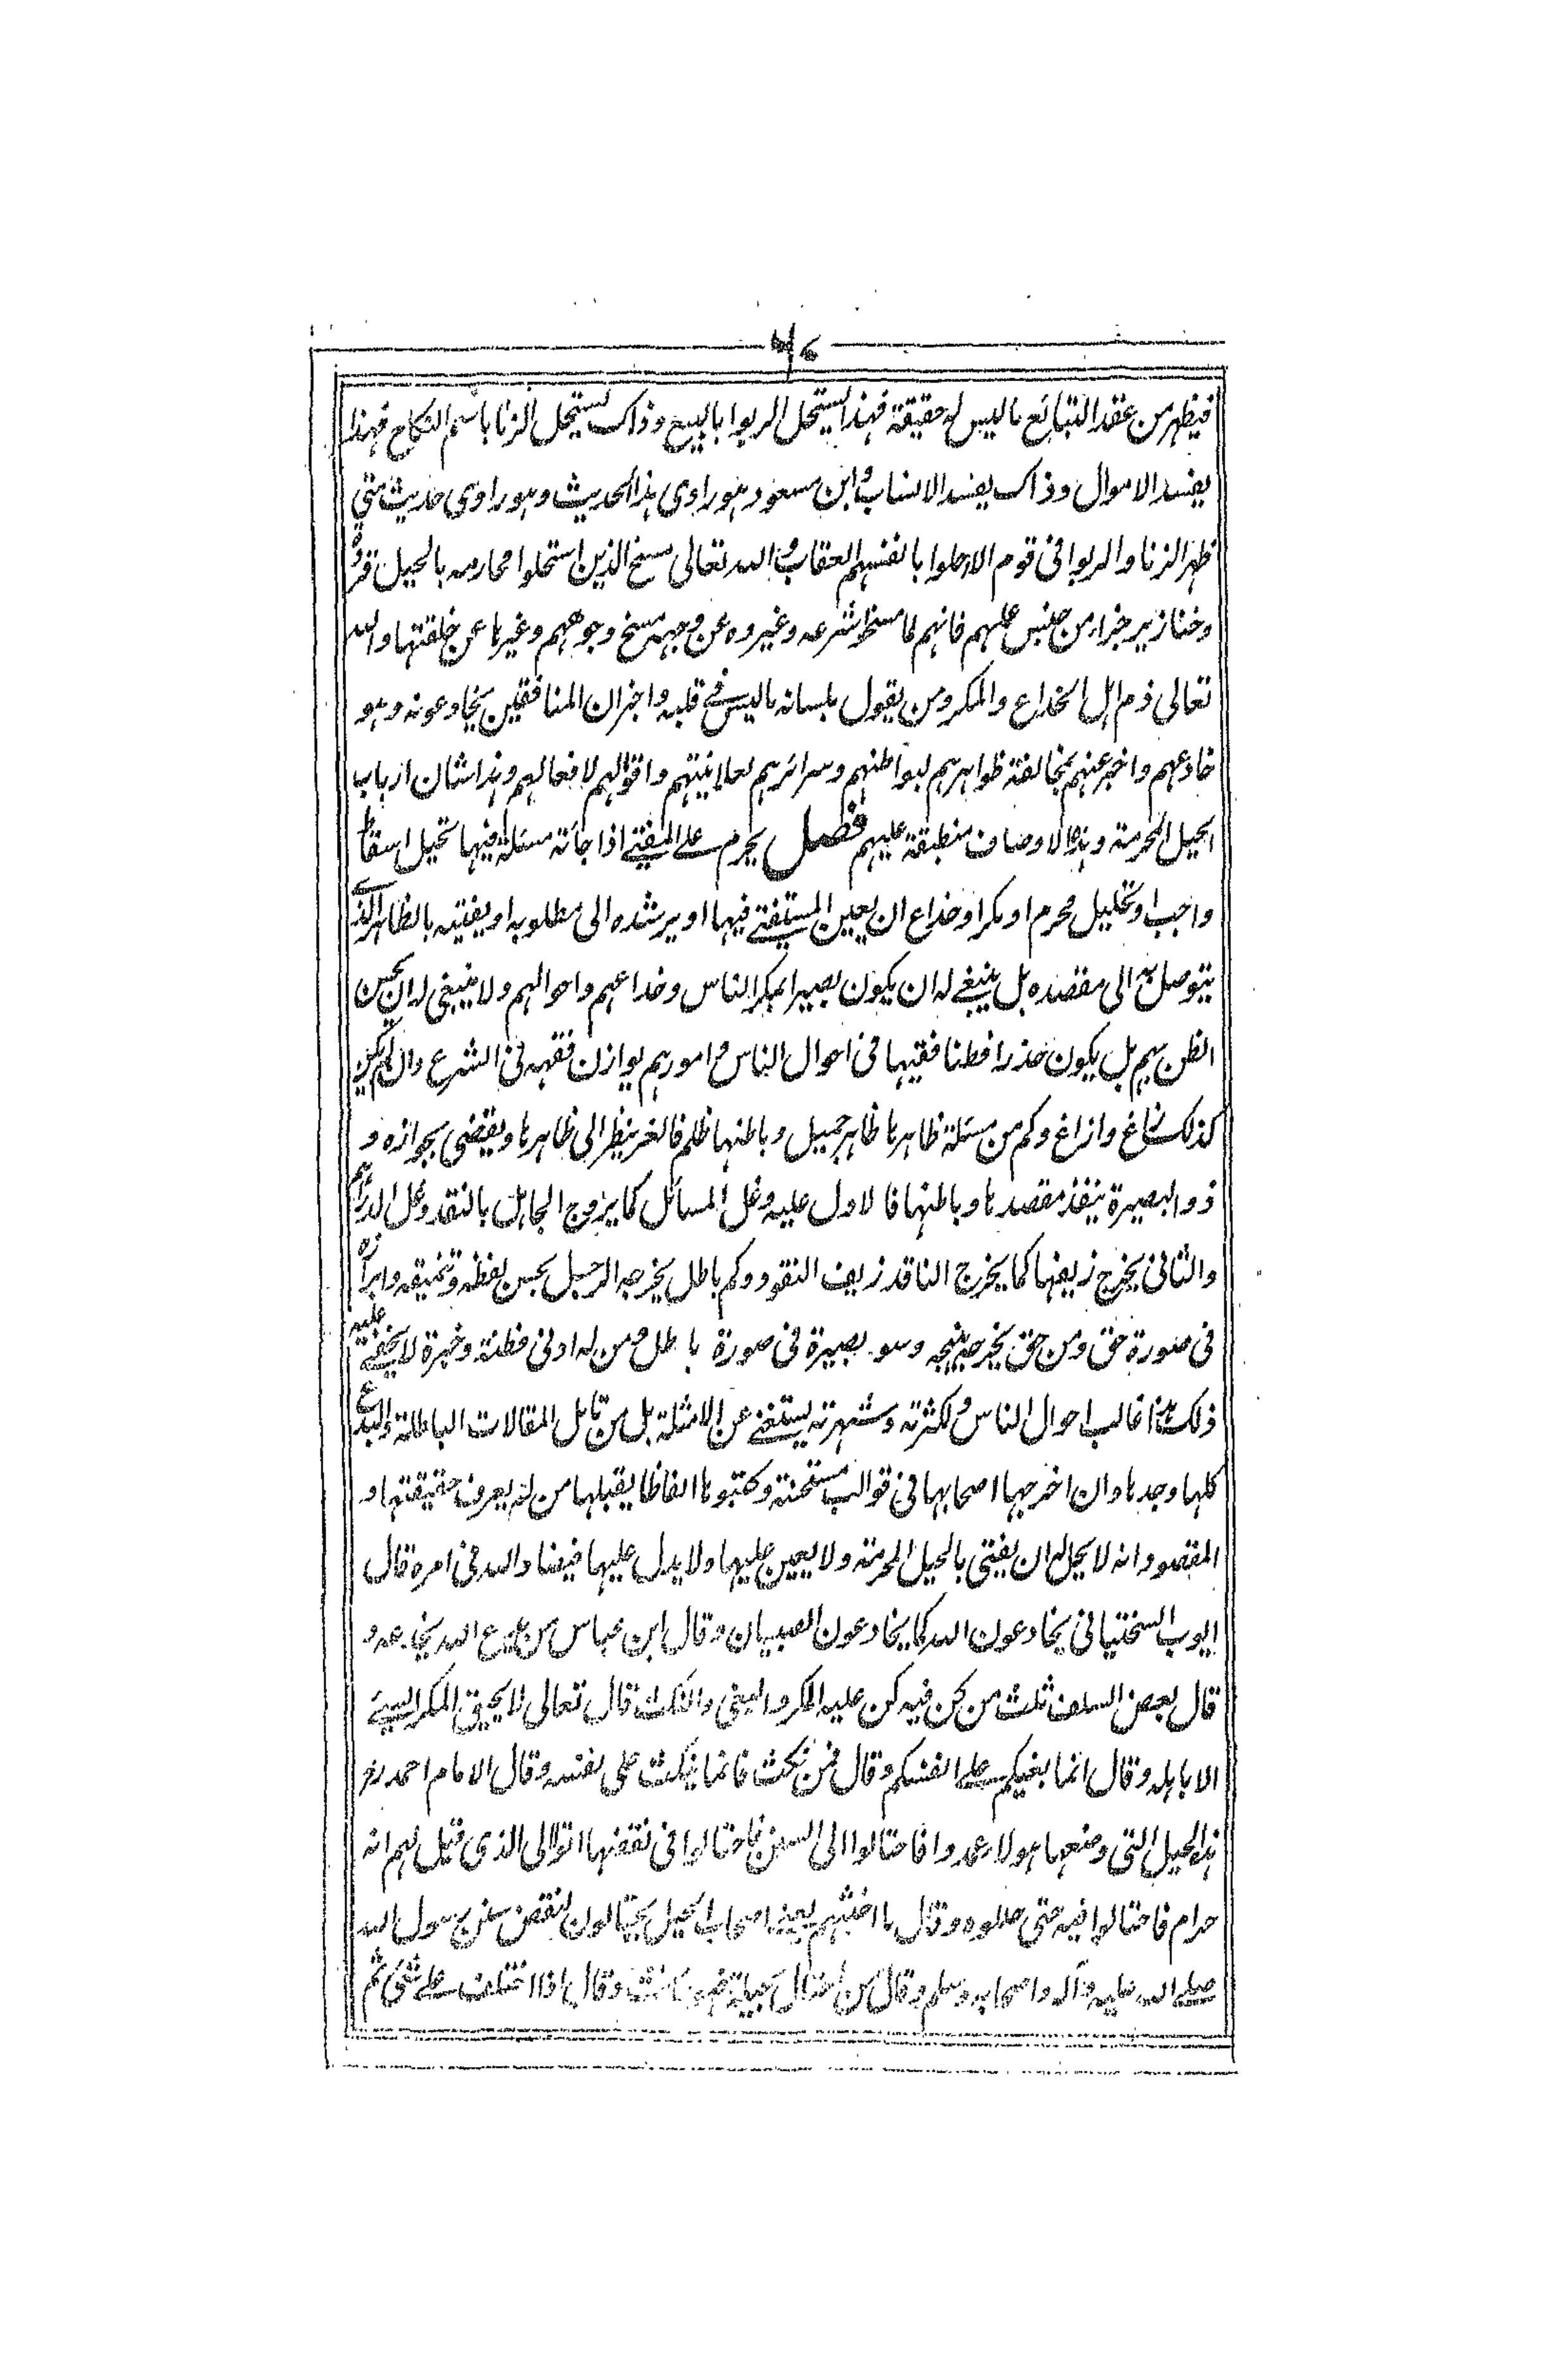 فيظهر من عقد التبايع ما ليس له حقيقة فهذا يستحل الربوا بالبيع وذاك يستحل الزنا باسم النكاح فهذا
يفسد الاموال وذاك يفسد الانساب وابن مسعود هو راوى هذا الحديث وهو راوى حديث متى
ظهر الزنا والربوا فى قوم الا احلوا بانفسهم العقاب والله تعالى مسخ الذين استحلوا محارمه بالحيل قردة
وخنازير جزاء من جنس عملهم فانهم لما مسخوا شرعه وغيروه عن وجهه مسخ وجوههم وغيرها عن خلقتها والله
تعالى ذم اهل الخداع والمكر ومن يقول بلسانه ما ليس فى قلبه واخبر ان المنافقين يخادعونه وهو
خادعهم واخبر عنهم بمخالفة ظواهرهم لبواطنهم وسرائرهم لعلانيتهم واقوالهم لافعالهم وهذا شان ارباب
الحيل المحرمة وهذه الاوصاف منطبقة عليهم فصل يحرم على المفتى اذا جائته مسئلة فيها تحيل اسقاط
واجب او تحليل محرم او مكر او خداع ان يعين المستفتى فيها او يرشده الى مطلوبه او يفتيه بالظاهر الذى
يتوصل به الى مقصده بل ينبغى له ان يكون بصيرا بمكر الناس وخداعهم واحوالهم ولا ينبغى له ان يحسن
الظن بهم بل يكون حذرا فطنا فقيها فى احوال الناس وامورهم يوازن فقهه فى الشرع وان لم يكن
كذلك زاغ وازاغ وكم من مسئلة ظاهرها ظاهر جميل وباطنها ظلم فالغر ينظر الى ظاهرها ويقضى بجوازه و
ذو البصيرة ينفذ مقصدها وباطنها فالاول عليه وغل المسائل كما يروج الجاهل بالنقد وغل الدراهم
والثانى يخرج زيفها كما يخرج الناقد زيف النقود وكم باطل يخرجه الرجل بحسن لفظه وتنميقه وابرازه
فى صورة حق ومن حق يخرجه بتهجنه وسوء بصيرة فى صورة باطل ومن له ادنى فطنة وخبرة لا يخفى عليه
ذلك هذا غالب احوال الناس ولكثرته وشهرته يستغنى عن الامثلة بل من تامل المقالات الباطلة والبدع
كلها وجدها وان اخرجها اصحابها فى قوالب مستحسنة وكتبوها الفاظا يقبلها من لم يعرف حقيقتها و
المقصود انه لا يحل له ان يفتى بالحيل المحرمة ولا يعين عليها ولا يدل عليها فيضاد الله فى امره قال
ايوب السختيانى يخادعون الله كما يخادعون الصبيان وقال ابن عباس من يخدع الله يخادعه و
قال بعض السلف ثلث من كن فيه كن عليه المكر والبغى والنكث قال تعالى لا يحيق المكر السيئ
الا باهله وقال انما بغيكم على انفسكم وقال فمن نكث فانما ينكث على نفسه وقال الامام احمد رح
هذه الحيل التى وضعها هولاء عمدوا فاحتالوا الى السنن فاحتالوا فى نقضها اتوا الى الذى قيل لهم انه
حرام فاحتالوا فيه حتى حللوه وقال ما اخبثهم يعنى اصحاب الحيل يحتالون لنقض سنن رسول الله
صلى الله عليه وآله واصحابه وسلم وقال من احتال بحيلة فهو حانث وقال اذا اختلف على شئ ثم